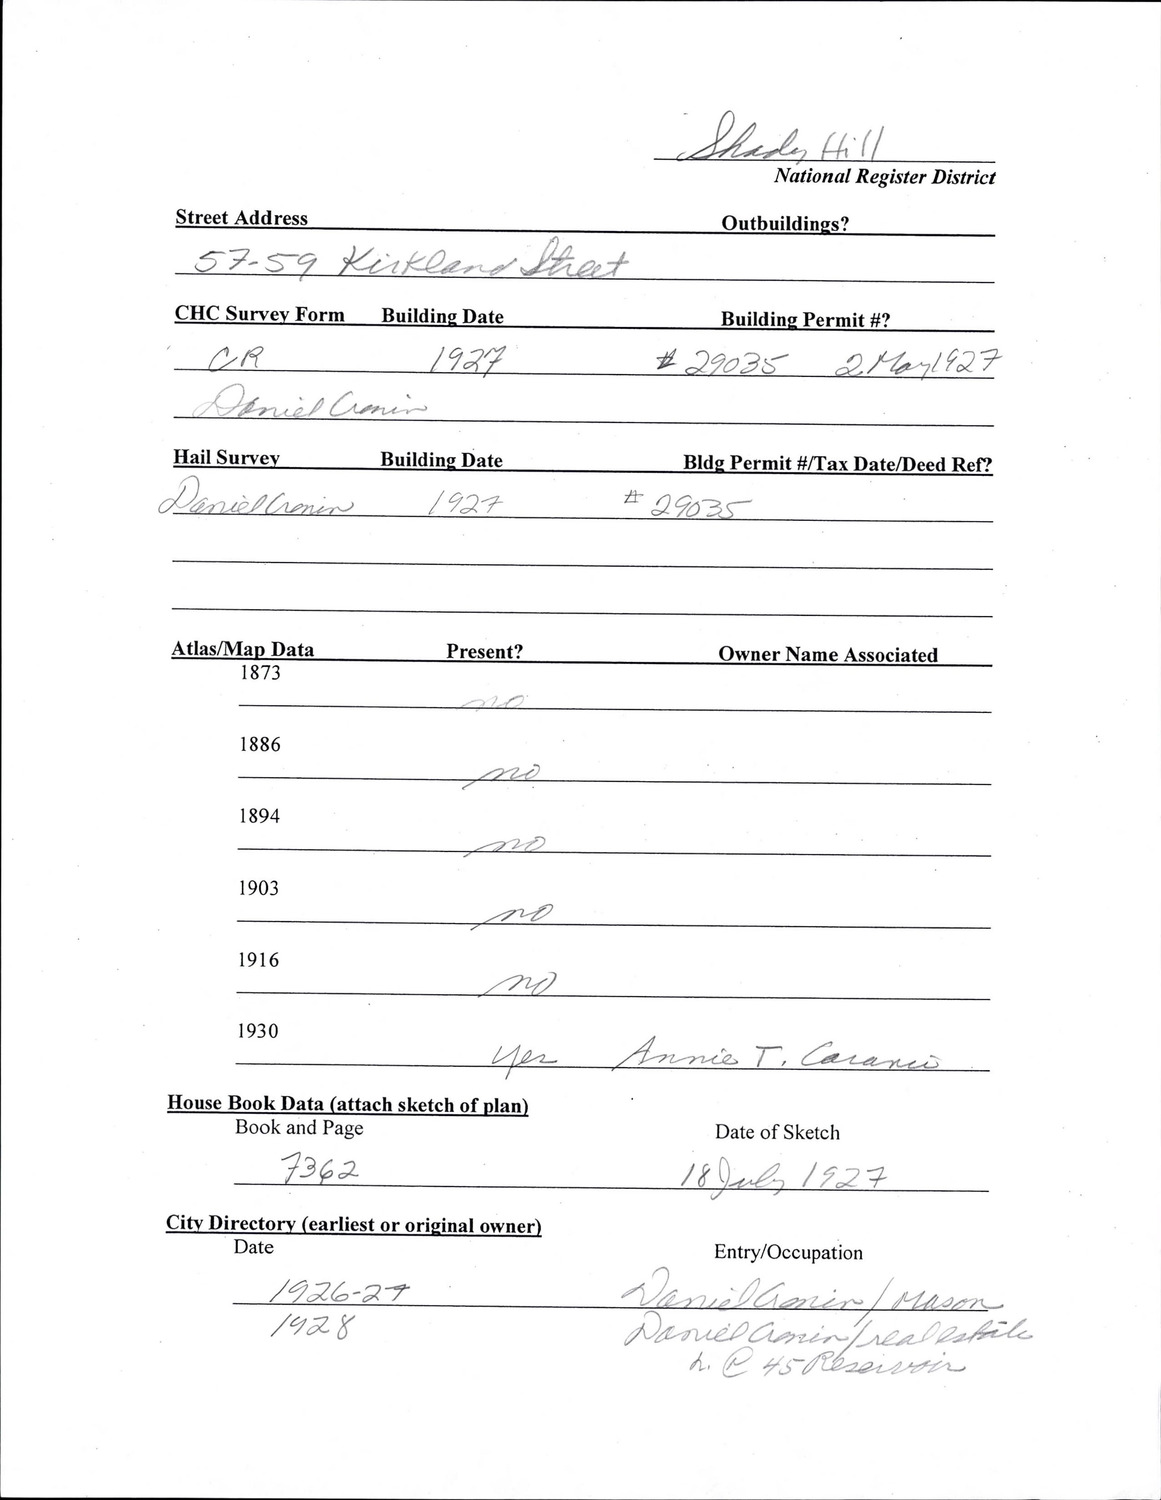 Shady Hill
National Register District
Street Address Outbuildings?
57-59 Kirkland Street
CHC Survey Form Building Date Building Permit #?
CR 1927 # 29035 2 May 1927
Daniel Cronin
Hail Survey Building Date Bldg Permit #/Tax Date/Deed Ref?
Daniel Cronin 1927 # 29035
Atlas/Map Data Present? Owner Name Associated
1873
no
1886
no
1894
no
1903
no
1916
no
1930
yes Annie T.
House Book Data (attach sketch of plan)
Book and Page Date of Sketch
7362 18 July 1927
City Directory (earliest or original owner)
Date Entry/Occupation
1926-27 Daniel Cronin / Mason
1928 Daniel Cronin / real estate
h. @ 45 Reservoir